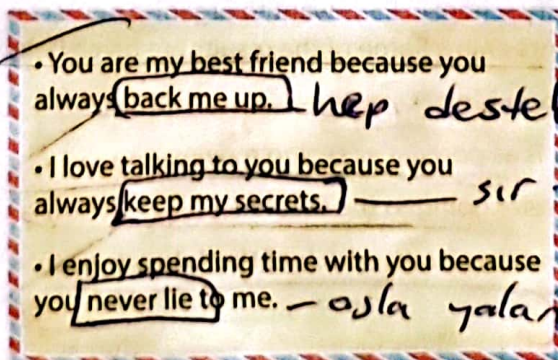 • You are my best friend because you
always back me up. hep deste
• I love talking to you because you
always keep my secrets. sır
• I enjoy spending time with you because
you never lie to me. – asla yalan